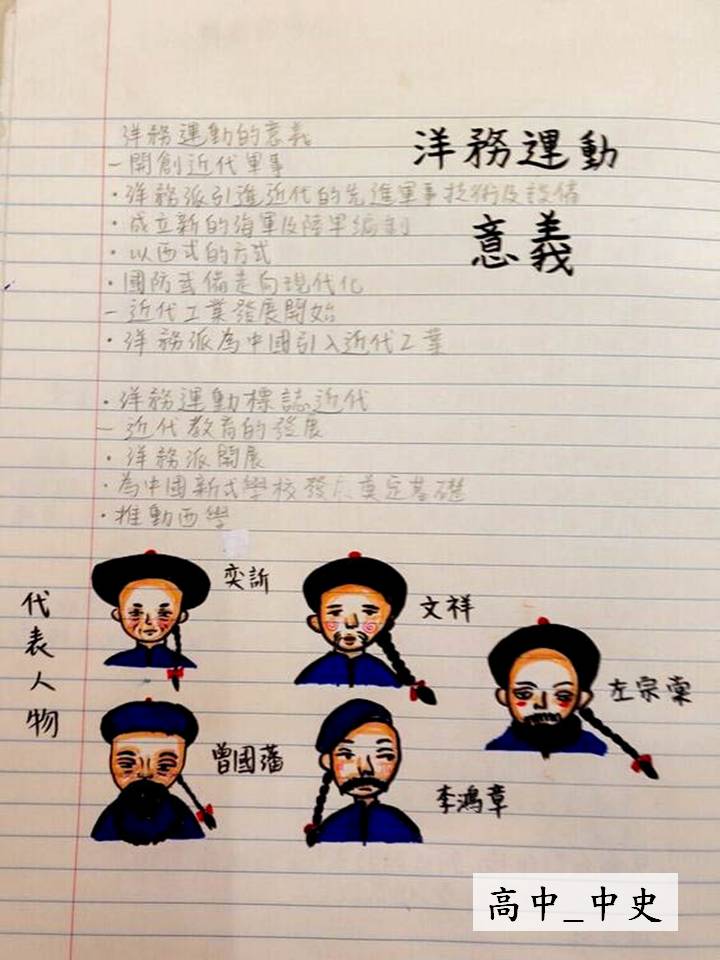 洋務運動
意義
洋務運動的意義
－開創近代軍事
·洋務派引進近代的先進軍事技術及設備
·成立新的海軍及陸軍編制
·以西式的方式
·國防武備走向現代化
－近代工業發展開始
·洋務派為中國引入近代工業
·洋務運動標誌近代
－近代教育的發展
·洋務派開展
·為中國新式學校發 奠定基礎
·推動西學
代表人物
奕訢
文祥
左宗棠
曾國藩
李鴻章
高中_中史